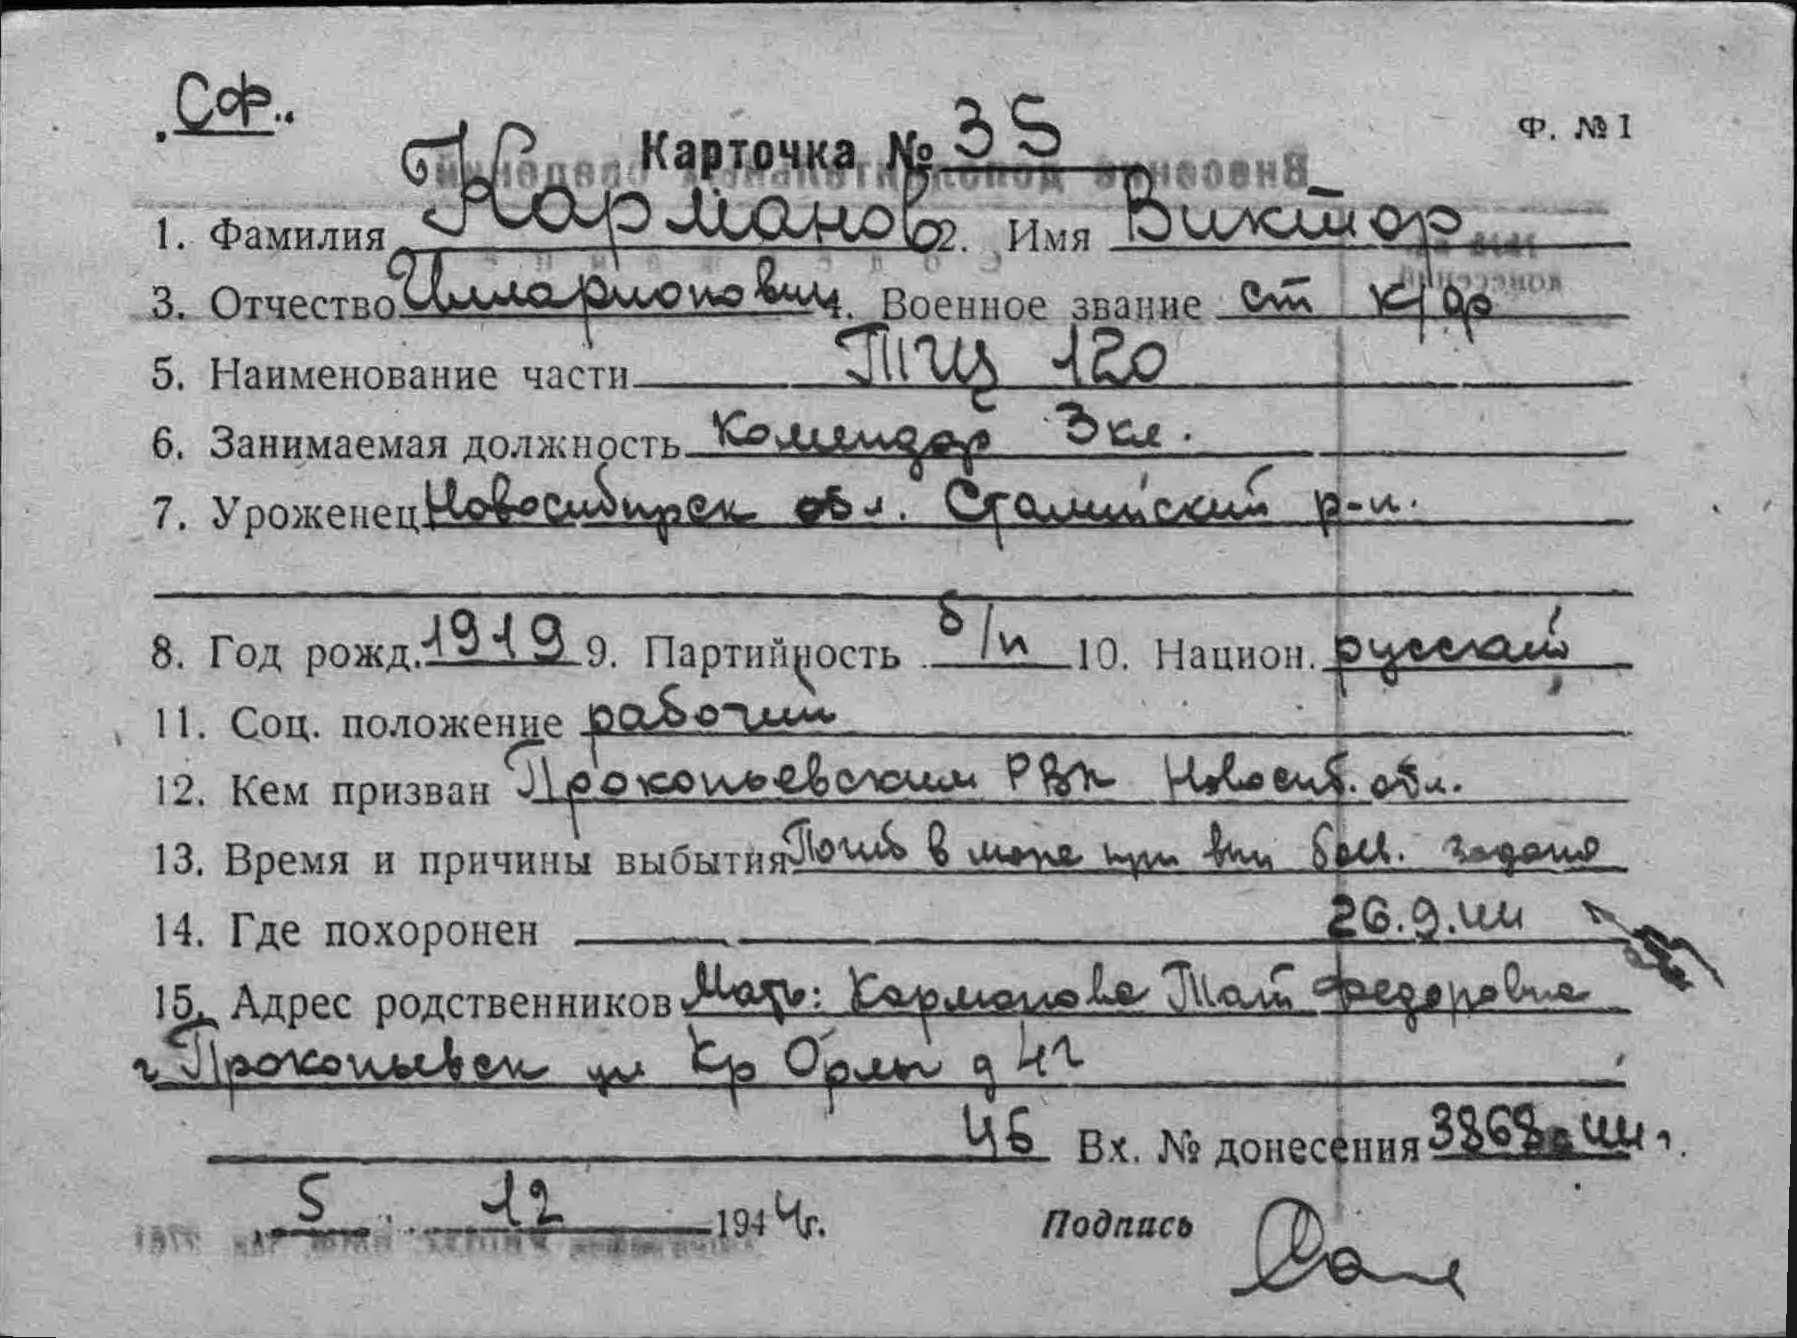 „Сф.“
Карточка № 35
Ф. № 1
1. Фамилия Карманов 2. Имя Виктор
3. Отчество Илларионович 4. Военное звание ст к/фр
5. Наименование части ТЩ 120
6. Занимаемая должность комендор 3 кл.
7. Уроженец Новосибирск обл. Сталинский р-н.
8. Год рожд. 1919 9. Партийность б/п 10. Национ. русский
11. Соц. положение рабочий
12. Кем призван Прокопьевским РВК Новосиб. обл.
13. Время и причины выбытия Погиб в море при вып боев. задания
14. Где похоронен 26.9.44
15. Адрес родственников Мать: Карманова Тат Федоровна
г Прокопьевск ул Кр Орлы д 42
Вх. № донесения 3868 44 г.
5 12 1944г. Подпись